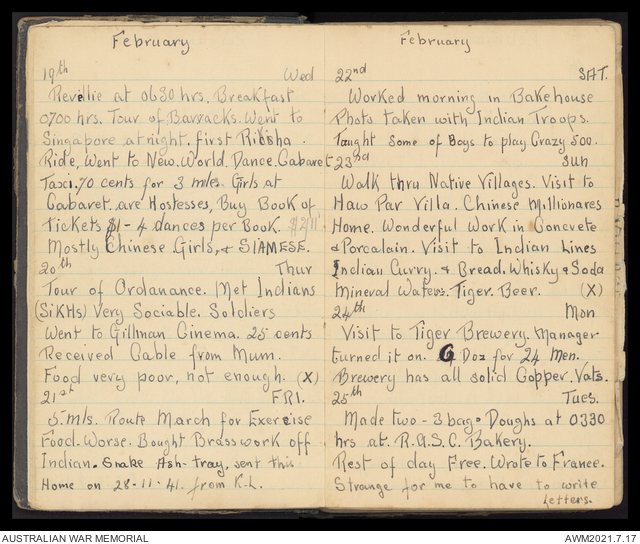 February
19th Wed
Revillie at 0630 hrs. Breakfast
0700 hrs. Tour of Barracks. Went to
Singapore at night. first Riksha
Ride, Went to New. World. Dance. Cabaret
Taxi. 70 cents for 3 miles. Girls at
Cabaret are Hostesses, Buy Book of
Tickets $1 - 4 dances per Book. $2/11
Mostly Chinese Girls, & SIAMESE.
20th Thur
Tour of Ordanance. Met Indians
(SiKHs) Very Sociable. Soldiers
Went to Gillman Cinema. 25 cents
Received Cable from Mum.
Food very poor, not enough. (X)
21st FRI.
5 mls. Route March for Exercise
Food. Worse. Bought Brasswork off
Indian. Snake Ash-tray, sent this
Home on 28-11-41. from K-L.
February
22nd SAT.
Worked morning in Bakehouse
Photo taken with Indian Troops.
Taught some of Boys to play Crazy 500.
23rd Sun
Walk thru Native Villages. Visit to
Haw Par Villa. Chinese Millionares
Home. Wonderful Work in Concrete
& Porcalain. Visit to Indian Lines
Indian Curry. & Bread. Whisky & Soda
Mineral Waters. Tiger. Beer. (X)
24th Mon
Visit to Tiger Brewery. Manager
turned it on. 6 Doz for 24 Men.
Brewery has all solid Copper. Vats.
25th Tues.
Made two - 3 bag Doughs at 0330
hrs at R.A.S.C. Bakery.
Rest of day Free. Wrote to France.
Strange for me to have to write
Letters.
AUSTRALIAN WAR MEMORIAL
AWM2021.7.17